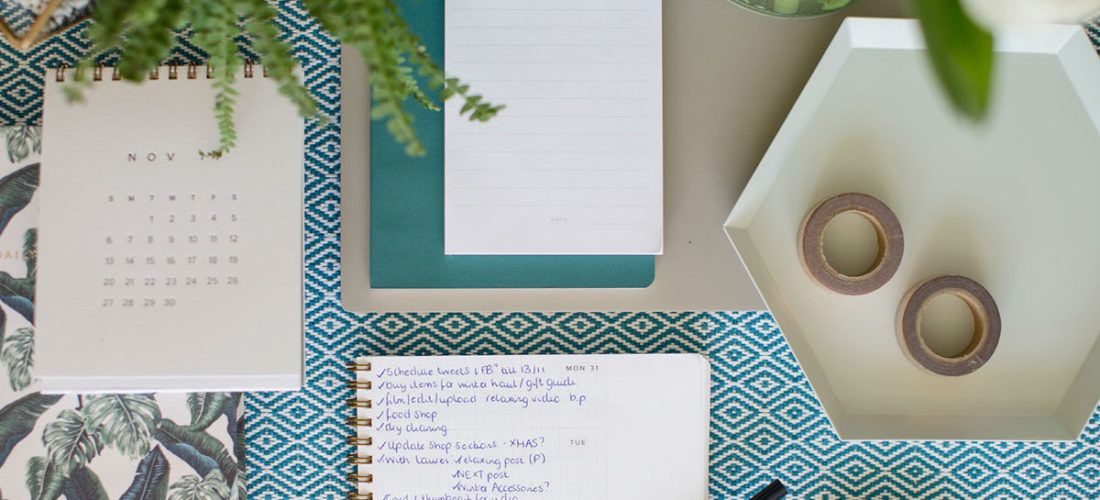 NOV
S M T W T F S
1 2 3 4 5
6 7 8 9 10 11 12
13 14 15 16 17 18 19
20 21 22 23 24 25 26
27 28 29 30
DATE
MON 31
TUE
✓Schedule tweets + FB till 13/11
✓buy items for winter haul/gift guide
✓film/edit/upload relaxing video - b.p
✓food shop
✓dry cleaning
✓Update Shop Sections - XMAS?
✓With Lauren, relaxing post (P)
✓NEXT post
✓Winter Accessories?